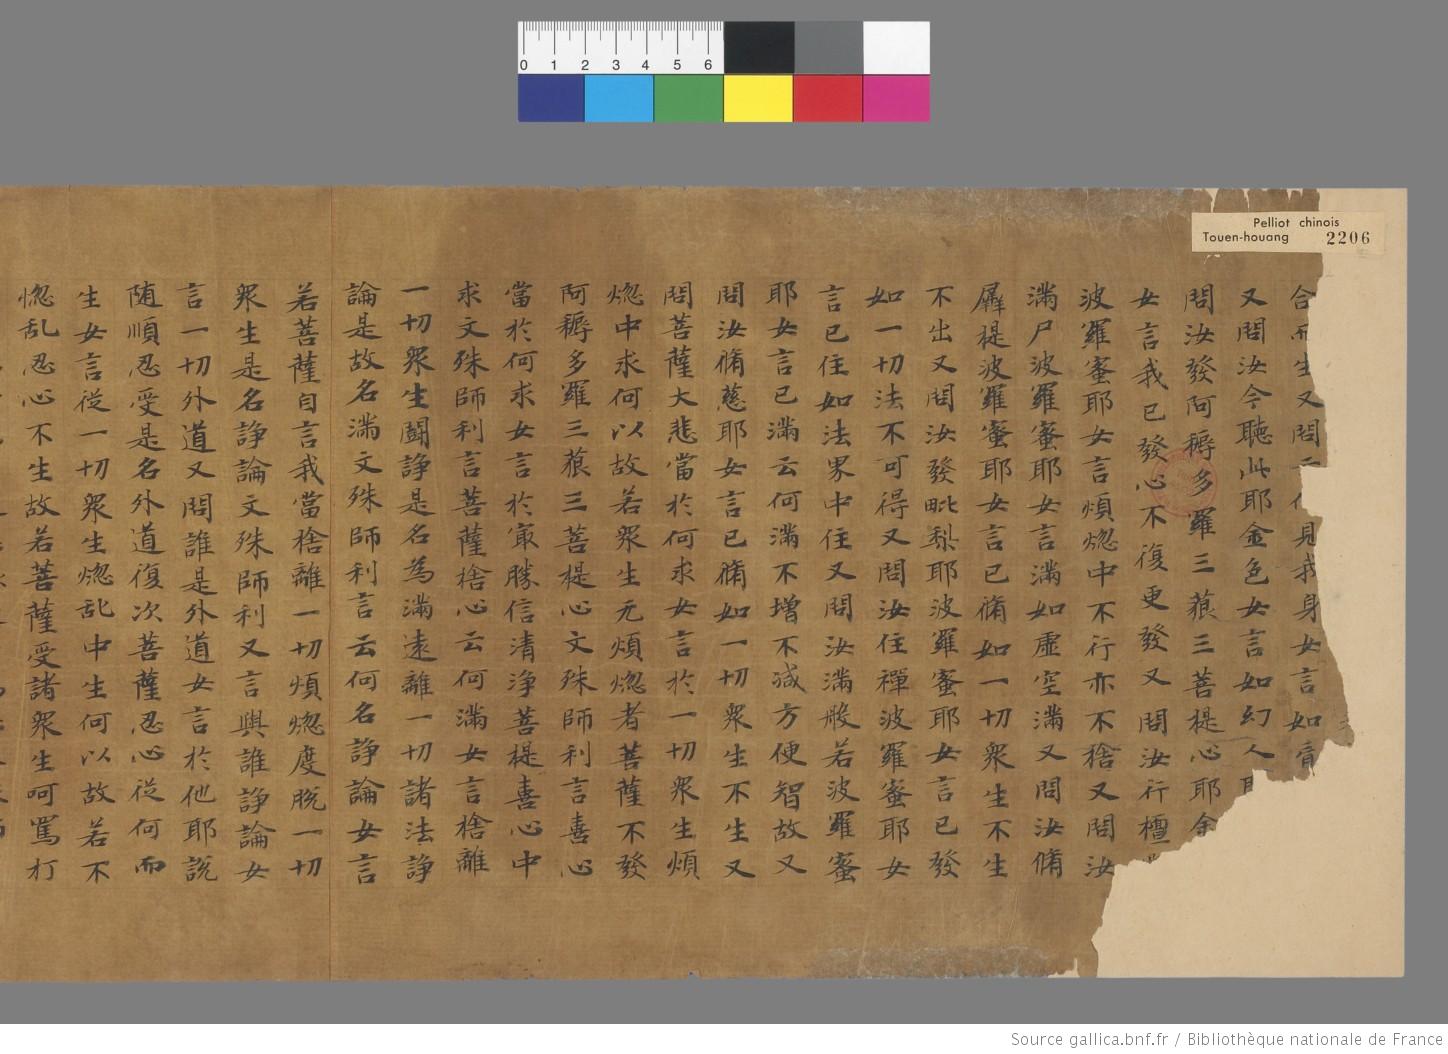 0 1 2 3 4 5 6
Pelliot chinois
Touen-houang 2206
合而生又問 見我身女言如
又問汝今聽此耶金色女言如幻人
問汝發阿耨多羅三藐三菩提心耶金
女言我已發心不復更發又問汝行檀
波羅蜜耶女言煩惚中不行亦不捨又問汝
滿尸波羅蜜耶女言滿如虛空滿又問汝脩
羼提波羅蜜耶女言已脩如一切衆生不生
不出又問汝發毗梨耶波羅蜜耶女言已發
如一切法不可得又問汝住禪波羅蜜耶女
言已住如法界中住又問汝滿般若波羅蜜
耶女言已滿云何滿不增不減方便智故又
問汝脩慈耶女言已脩如一切衆生不生又
問菩薩大悲當於何求女言於一切衆生煩
惚中求何以故若衆生无煩惚者菩薩不發
阿耨多羅三藐三菩提心文殊師利言喜心
當於何求女言於㝡勝信清淨菩提喜心中
求文殊師利言菩薩捨心云何滿女言捨離
一切衆生鬪諍是名為滿遠離一切諸法諍
論是故名滿文殊師利言云何名諍論女言
若菩薩自言我當捨離一切煩惚度脫一切
衆生是名諍論文殊師利又言與誰諍論女
言一切外道又問誰是外道女言於他耶說
随順忍受是名外道復次菩薩忍心從何而
生女言從一切衆生惚乱中生何以故若不
惚乱忍心不生故若菩薩受諸衆生呵罵打
Source gallica.bnf.fr / Bibliothèque nationale de France